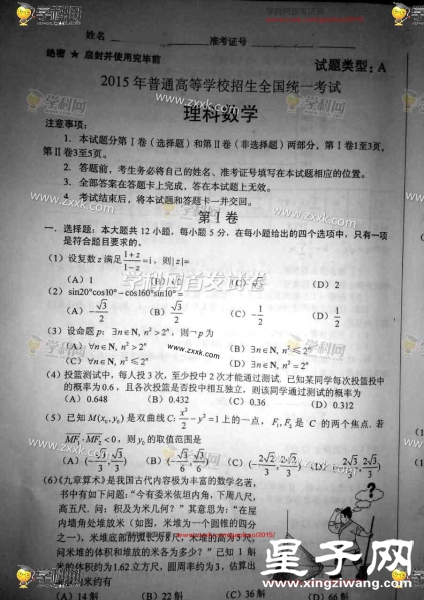 姓名
准考证号
绝密 ★ 启封并使用完毕前
试题类型：A
2015 年普通高等学校招生全国统一考试
理科数学
注意事项：
1. 本试题分第 I 卷（选择题）和第 II 卷（非选择题）两部分，第 I 卷1至3页，
第 II 卷3至5页。
2. 答题前，考生务必将自己的姓名、准考证号填写在本试题相应的位置。
3. 全部答案在答题卡上完成，答在本试题上无效。
考试结束后，将本试题和答题卡一并交回。
第 I 卷
一．选择题：本大题共 12 小题，每小题 5 分，在每小题给出的四个选项中，只有一项
是符合题目要求的。
(1) 设复数 z 满足 (1+z)/(1−z) = i，则 |z|=
(A) 1 (D) 2
(2) sin20°cos10°−cos160°sin10°=
(A) −√3/2 (B) √3/2 (C) −1/2 (D) 1/2
(3) 设命题 p：∃n∈N, n²>2ⁿ，则¬p为
(A) ∀n∈N, n²>2ⁿ (B) ∃n∈N, n²≤2ⁿ
(C) ∀n∈N, n²≤2ⁿ (D) ∃n∈N, n²=2ⁿ
(4) 投篮测试中，每人投 3 次，至少投中 2 次才能通过测试. 已知某同学每次投篮投中
的概率为 0.6，且各次投篮是否投中相互独立，则该同学通过测试的概率为
(A) 0.648 (B) 0.432 (C) 0.36 (D) 0.312
(5) 已知 M(x₀,y₀) 是双曲线 C: x²/2 − y²=1 上的一点，F₁,F₂ 是 C 的两个焦点. 若
MF₁·MF₂<0，则 y₀ 的取值范围是
(A) (−√3/3, √3/3) (C) (−2√2/3, 2√2/3) (D) (−2√3/3, 2√3/3)
(6)《九章算术》是我国古代内容极为丰富的数学名著，
书中有如下问题：“今有委米依垣内角，下周八尺，
高五尺．问：积及为米几何？”其意思为：“在屋
内墙角处堆放米（如图，米堆为一个圆锥的四分
之一），米堆底部的弧长为8尺，米堆的高为5尺，
问米堆的体积和堆放的米各为多少？”已知 1 斛
米的体积约为1.62立方尺，圆周率约为3，估算出
米约有
(A) 14 斛 (B) 22 斛 (C) 36 斛 (D) 66 斛
学科网
www.zxxk.com
学科网首发试卷
星子网
www.xingziwang.com